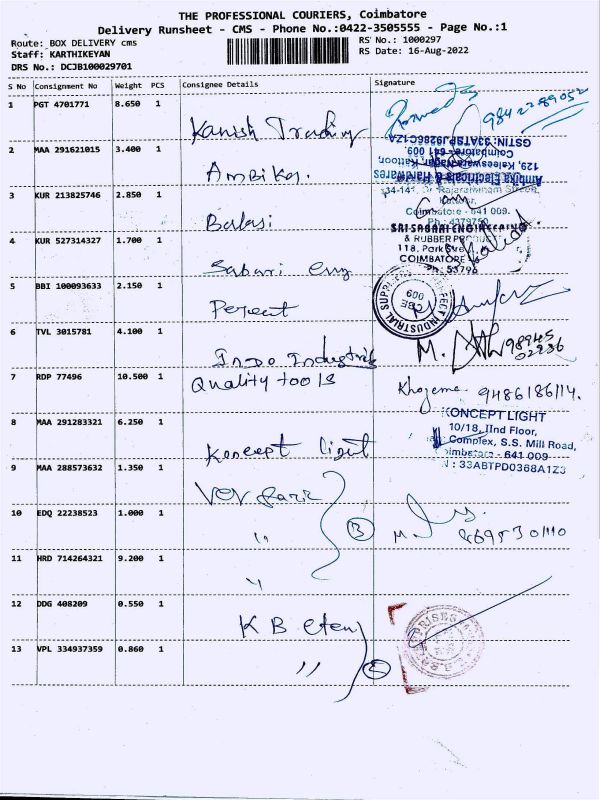 THE PROFESSIONAL COURIERS, Coimbatore
Delivery Runsheet - CMS - Phone No.:0422-3505555 - Page No.:1
Route: BOX DELIVERY cms
RS No.: 1000297
Staff: KARTHIKEYAN
RS Date: 16-Aug-2022
DRS No.: DCJB100029701
S No Consignment No Weight PCS Consignee Details Signature
1 PGT 4701771 8.650 1
Kanish Trading
9842289052
GSTIN:33ATSPJ9286C1ZA
Coimbatore - 641 009
129, Kaleeswara Nagar, Kattoor,
Ambika Electricals & Hardwares
2 MAA 291621015 3.400 1
Ambika.
3 KUR 213825746 2.850 1
Balaji
Coimbatore - 641 009.
Ph: 4379750
4 KUR 527314327 1.700 1
Sabari eng
SRI SABARI ENGINEERING
& RUBBER PRODUCT
118, Park
COIMBATORE
5 BBI 100093633 2.150 1
Perfect
PERFECT INDUSTRIAL
CBE
009
6 TVL 3015781 4.100 1
Indo Industries
M.
98945
02236
7 RDP 77496 10.500 1
Quality tools
Khozema 9486186114.
8 MAA 291283321 6.250 1
Koncept light
KONCEPT LIGHT
10/18, IInd Floor,
Complex, S.S. Mill Road,
Coimbatore - 641 009
: 33ABTPD0368A1Z3
9 MAA 288573632 1.350 1
10 EDQ 22238523 1.000 1
"
3
M.
11 HRD 714264321 9.200 1
"
12 DDG 408209 0.550 1
K B
13 VPL 334937359 0.860 1
"